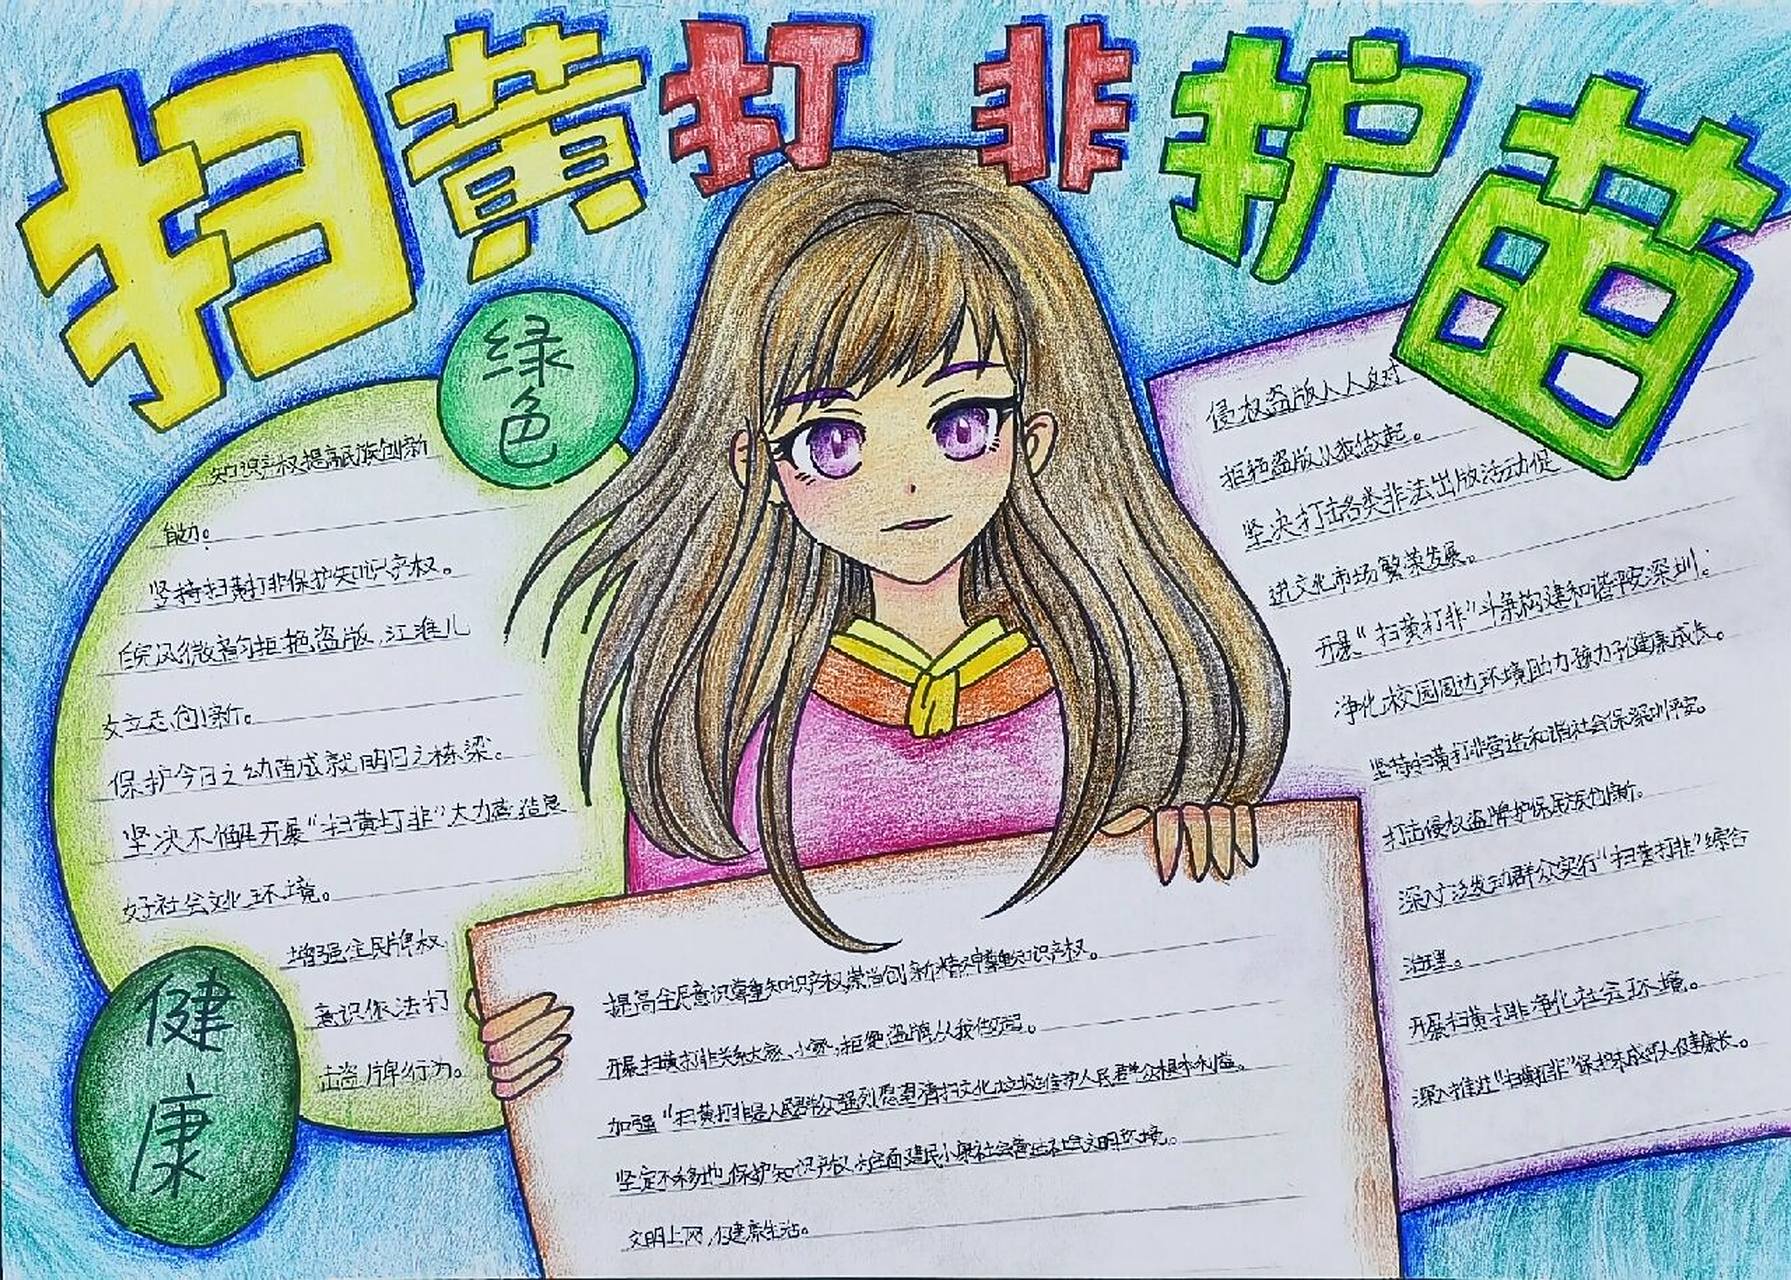 扫黄打非护苗
绿色
知识产权提高民族创新
能力。
坚持扫黄打非保护知识产权。
皖风徽韵拒绝盗版,江淮儿
女立志创新。
保护今日之幼苗成就明日之栋梁。
坚决不懈开展“扫黄打非”大力营造良
好社会文化环境。
增强全民牌权
意识依法打
击盗牌行为。
健康
提高全民意识尊重知识产权,崇尚创新精神尊重知识产权。
开展扫黄打非关系大家、小家,拒绝盗牌从我做起。
加强“扫黄打非是人民群众强烈愿望清扫文化垃圾维护人民群众根本利益。
坚定不移地保护知识产权,全面建民小康社会营造社会文明环境。
文明上网,健康生活。
侵权盗版人人反对
拒绝盗版从我做起。
坚决打击各类非法出版活动促
进文化市场繁荣发展。
开展“扫黄打非”斗争构建和谐平安深圳。
净化校园周边环境助力孩子健康成长。
坚持扫黄打非营造和谐社会保深圳平安。
打击侵权盗牌护保民族创新。
深入广泛发动群众实行“扫黄打非”综合
治理。
开展扫黄打非净化社会环境。
深入推进“扫黄打非”保护未成年人健康长。